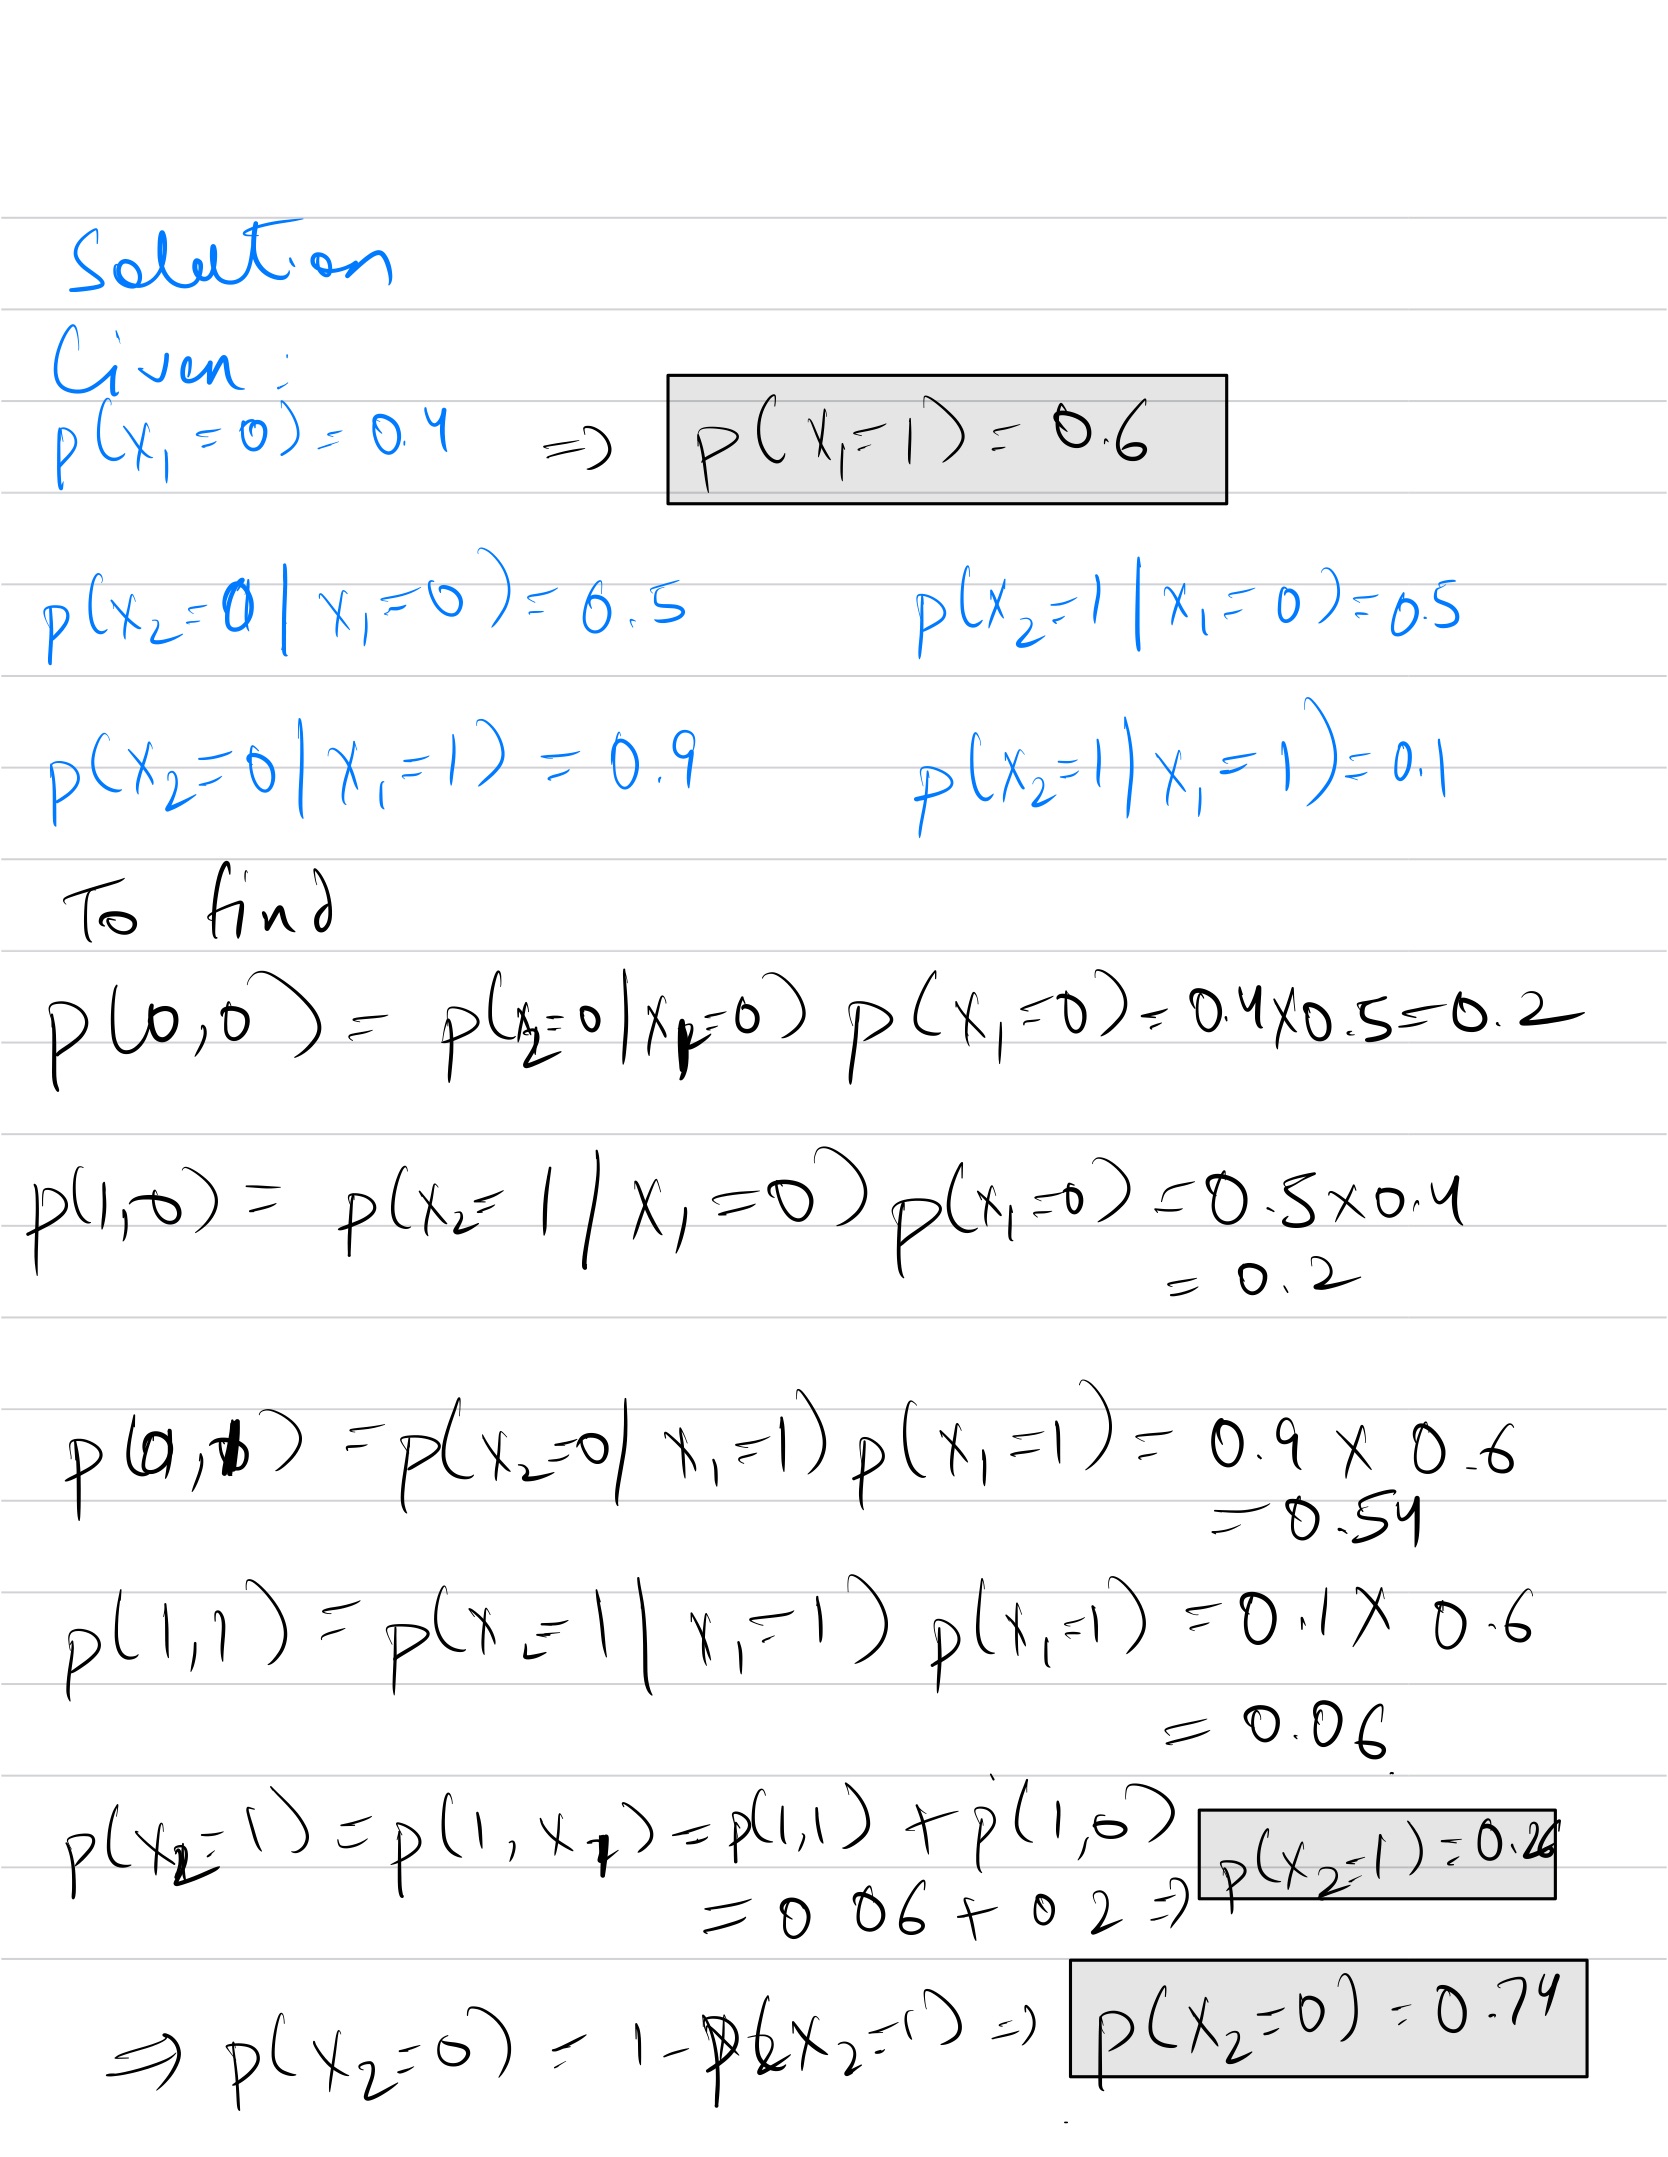 Solution
Given:
p(x₁=0)=0.4 ⇒ p(x₁=1)=0.6
p(x₂=0|x₁=0)=0.5 p(x₂=1|x₁=0)=0.5
p(x₂=0|x₁=1)=0.9 p(x₂=1|x₁=1)=0.1
To find
p(0,0)=p(x₂=0|x₁=0)p(x₁=0)=0.4×0.5=0.2
p(1,0)=p(x₂=1|x₁=0)p(x₁=0)=0.5×0.4
=0.2
p(0,1)=p(x₂=0|x₁=1)p(x₁=1)=0.9×0.6
=0.54
p(1,1)=p(x₂=1|x₁=1)p(x₁=1)=0.1×0.6
=0.06
p(x₂=1)=p(1,x₁)=p(1,1)+p(1,0) p(x₂=1)=0.26
=0 06+0 2⇒
⇒p(x₂=0)=1-p(x₂=1)⇒ p(x₂=0)=0.74